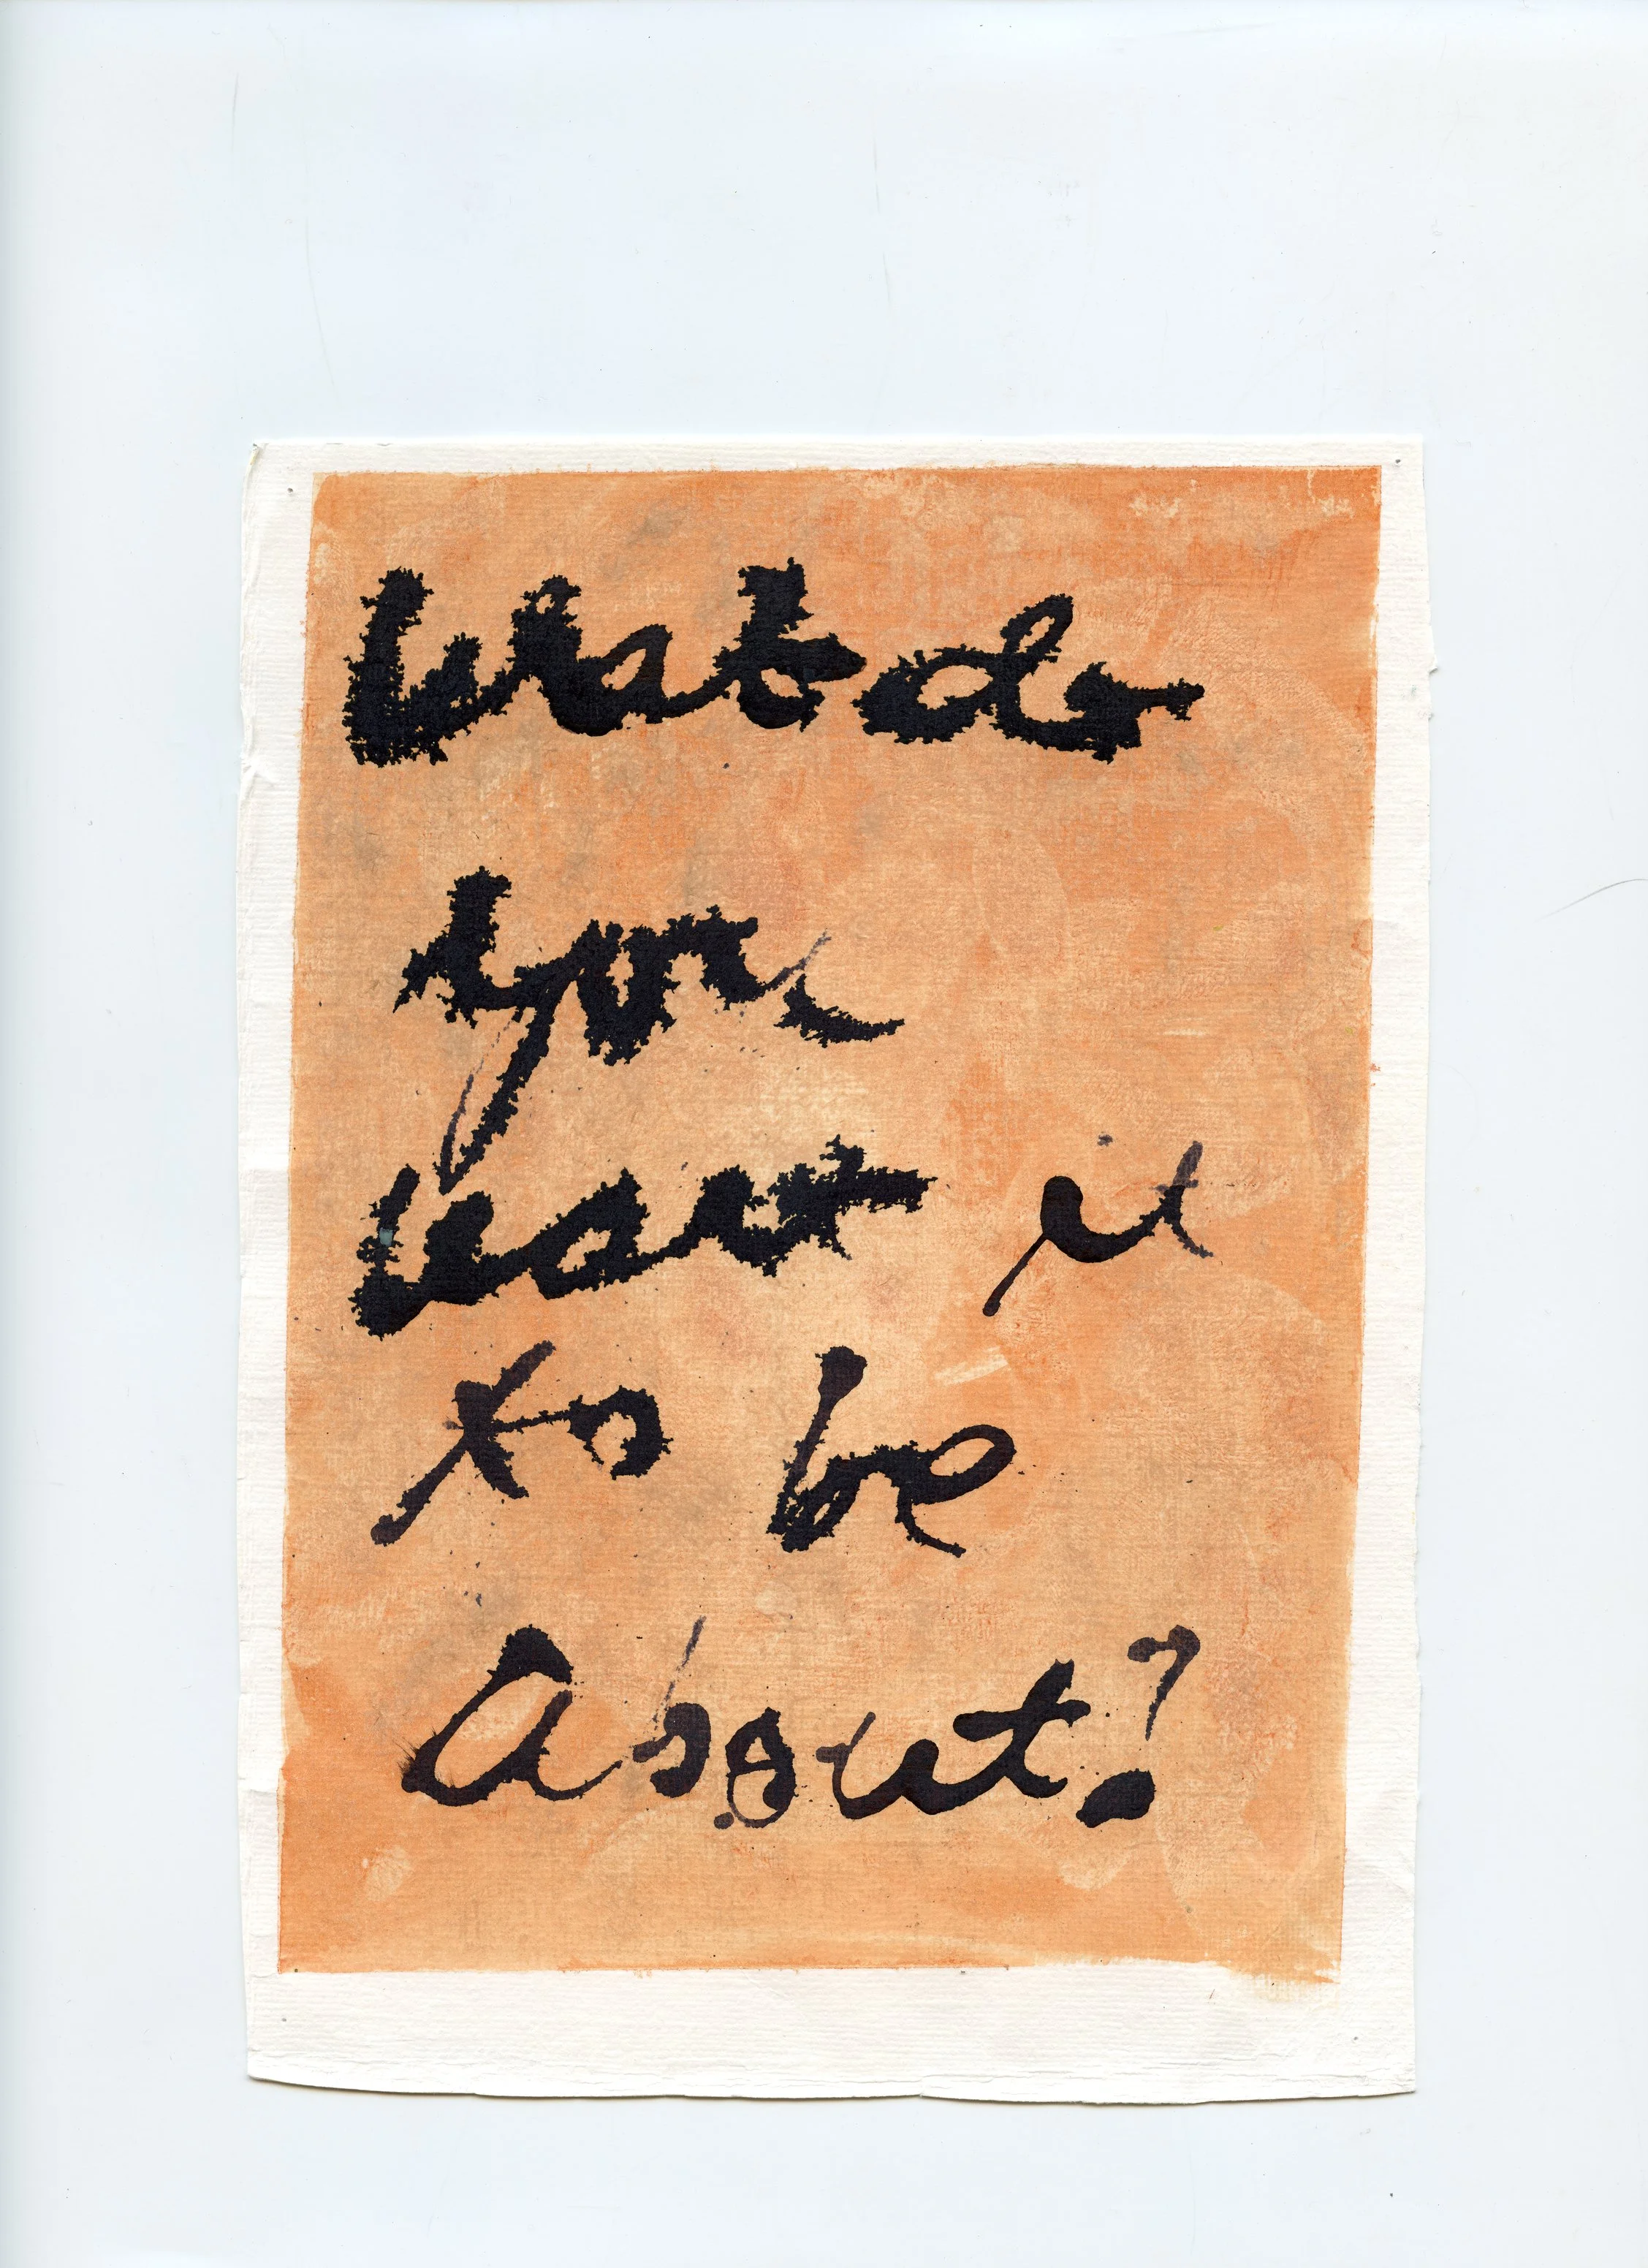 What do
you
want it
to be
About?